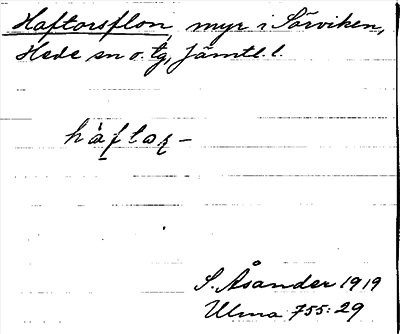 Haftorsflon, myr i Sörviken,
Hede sn o. tg, Jämtl. l.
hàftoʂ-
S. Åsander 1919
Ulma 755:29